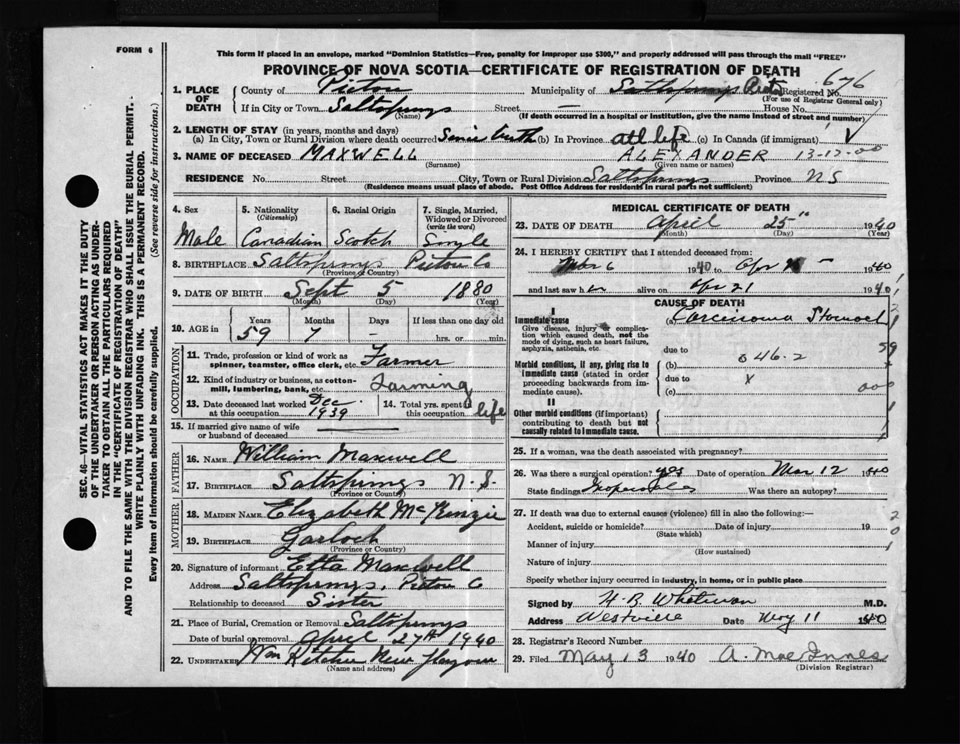 FORM 6
This form if placed in an envelope, marked "Dominion Statistics—Free, penalty for improper use $300," and properly addressed will pass through the mail "FREE"
PROVINCE OF NOVA SCOTIA—CERTIFICATE OF REGISTRATION OF DEATH
1. PLACE OF DEATH County of Pictou Municipality of Saltsprings Registered No. 676
(For use of Registrar General only)
If in City or Town Saltsprings Street — House No.
(Name) (If death occurred in a hospital or institution, give the name instead of street and number)
2. LENGTH OF STAY (in years, months and days)
(a) In City, Town or Rural Division where death occurred Since birth (b) In Province all life (c) In Canada (if immigrant)
3. NAME OF DECEASED MAXWELL ALEXANDER 13-17-00
(Surname) (Given name or names)
RESIDENCE No. Street City, Town or Rural Division Saltsprings Province NS
(Residence means usual place of abode. Post Office Address for residents in rural parts not sufficient)
4. Sex Male
5. Nationality (Citizenship) Canadian
6. Racial Origin Scotch
7. Single, Married, Widowed or Divorced (write the word) Single
8. BIRTHPLACE Saltsprings Pictou Co
(Province or Country)
9. DATE OF BIRTH Sept 5 1880
(Month) (Day) (Year)
10. AGE in Years 59 Months 7 Days — If less than one day old hrs. or min.
OCCUPATION
11. Trade, profession or kind of work as spinner, teamster, office clerk, etc. Farmer
12. Kind of industry or business, as cotton-mill, lumbering, bank, etc. Farming
13. Date deceased last worked at this occupation Dec. 1939
14. Total yrs. spent in this occupation life
15. If married give name of wife or husband of deceased —
FATHER
16. Name William Maxwell
17. Birthplace Saltsprings N.S.
(Province or Country)
MOTHER
18. Maiden Name Elizabeth McKenzie
19. Birthplace Garloch
(Province or Country)
20. Signature of informant Etta Maxwell
Address Saltsprings, Pictou C
Relationship to deceased Sister
21. Place of Burial, Cremation or Removal Saltsprings
Date of burial or removal April 27th 1940
22. Undertaker Wm New Glasgow
(Name and address)
MEDICAL CERTIFICATE OF DEATH
23. DATE OF DEATH April 25" 1940
(Month) (Day) (Year)
24. I HEREBY CERTIFY that I attended deceased from:
Mar 6 1940 to Apr 1940
and last saw h alive on Apr 21 1940
CAUSE OF DEATH
I
Immediate cause
Give disease, injury or complication which caused death, not the mode of dying, such as heart failure, asphyxia, asthenia, etc.
(a) Carcinoma Stomach
due to
Morbid conditions, if any, giving rise to immediate cause (stated in order proceeding backwards from immediate cause)
(b) 046.2
due to x
(c)
II
Other morbid conditions (if important) contributing to death but not causally related to immediate cause.
59
000
25. If a woman, was the death associated with pregnancy?
26. Was there a surgical operation? yes Date of operation Mar 12 1940
State findings Inoperable Was there an autopsy?
27. If death was due to external causes (violence) fill in also the following:—
Accident, suicide or homicide? Date of injury 19
(State which)
Manner of injury
(How sustained)
Nature of injury
Specify whether injury occurred in industry, in home, or in public place
Signed by H. B. Whitman M.D.
Address Westville Date May 11 1940
28. Registrar's Record Number
29. Filed May 13 1940 A. MacInnes
(Division Registrar)
SEC. 46—VITAL STATISTICS ACT MAKES IT THE DUTY
OF THE UNDERTAKER OR PERSON ACTING AS UNDER-
TAKER TO OBTAIN ALL THE PARTICULARS REQUIRED
IN THE "CERTIFICATE OF REGISTRATION OF DEATH"
AND TO FILE THE SAME WITH THE DIVISION REGISTRAR WHO SHALL ISSUE THE BURIAL PERMIT.
WRITE PLAINLY WITH UNFADING INK. THIS IS A PERMANENT RECORD.
Every item of Information should be carefully supplied. (See reverse side for instructions.)